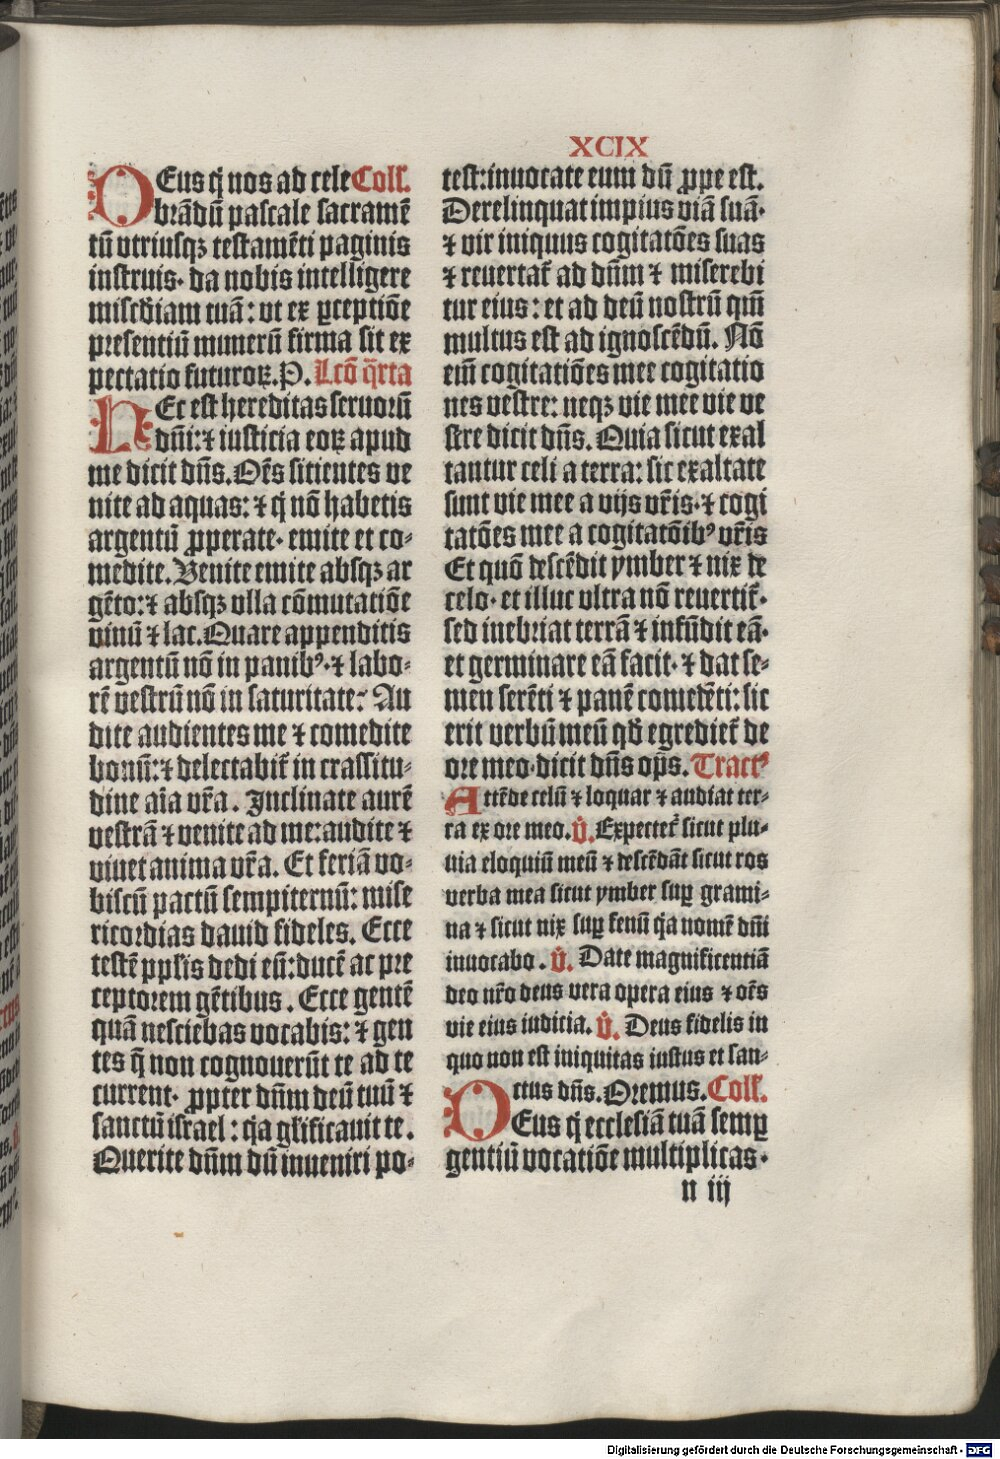 XCIX
DEus q̇ nos ad cele Coll̃.
brãdũ pascale sacramẽ
tũ vtriusqꝫ testamẽti paginis
instruis· da nobis intelligere
misc̃diam tuã: vt ex ꝑceptiõe
presentiũ munerũ firma sit ex
pectatio futuroꝝ.P. Lcõ q̃rta
HEc est hereditas seruorũ
dñi:⁊ iusticia eoꝝ apud
me dicit dñs.Oẽs sitientes ve
nite ad aquas:⁊ q̇ nõ habetis
argentũ ꝓperate· emite et co⸗
medite.Venite emite absqꝫ ar
gẽto:⁊ absqꝫ vlla cõmutatiõe
vinũ ⁊ lac.Quare appenditis
argentũ nõ in panibꝰ·⁊ labo⸗
rẽ vestrũ nõ in saturitate? Au
dite audientes me ⁊ comedite
bonũ:⁊ delectabit̃ in crassitu⸗
dine aĩa vr̃a. Inclinate aurẽ
vestrã ⁊ venite ad me:audite ⁊
viuet anima vr̃a. Et feriã vo⸗
biscũ pactũ sempiternũ: mise
ricordias dauid fideles. Ecce
testẽ pplĩs dedi eũ:ducẽ ac pre
ceptorem gẽtibus. Ecce gentẽ
quã nesciebas vocabis:⁊ gen
tes q̃ non cognouerũt te ad te
current· ꝓpter dñm deũ tuũ ⁊
sanctũ israel: q̇a gl̃ificauit te.
Querite dñm dũ inueniri po⸗
test:inuocate eum dũ ꝓpe est.
Derelinquat impius viã suã·
⁊ vir iniquus cogitatões suas
⁊ reuertat̃ ad dñm ⁊ miserebi
tur eius: et ad deũ nostrũ qm̃
multus est ad ignoscẽdũ. Nõ
em̃ cogitatiões mee cogitatio
nes vestre: neqꝫ vie mee vie ve
stre dicit dñs. Quia sicut exal
tantur celi a terra: sic exaltate
sunt vie mee a vijs vr̃is·⁊ cogi
tatões mee a cogitatõibꝰ vr̃is
Et quõ descẽdit ymber ⁊ nix de
celo· et illuc vltra nõ reuertit̃·
sed inebriat terrã ⁊ infũdit eã·
et germinare eã facit·⁊ dat se⸗
men serẽti ⁊ panẽ comedẽti: sic
erit verbũ meũ qd̃ egrediet̃ de
ore meo·dicit dñs op̃s. Tractꝰ
Attẽde celũ ⁊ loquar ⁊ audiat ter⸗
ra ex ore meo. V̊. Expectet̃ sicut plu⸗
uia eloquiũ meũ ⁊ descẽdãt sicut ros
verba mea sicut ymber suꝑ grami⸗
na ⁊ sicut nix suꝑ fenũ q̇a nomẽ dñi
inuocabo. V̊. Date magnificentiã
deo nr̃o deus vera opera eius ⁊ oẽs
vie eius iudicia. V̊. Deus fidelis in
quo non est iniquitas iustus et san⸗
ctus dñs. Oremus. Coll̃.
DEus q̇ ecclesiã tuã semꝑ
gentiũ vocatiõe multiplicas·
n iij
Digitalisierung gefördert durch die Deutsche Forschungsgemeinschaft - DFG